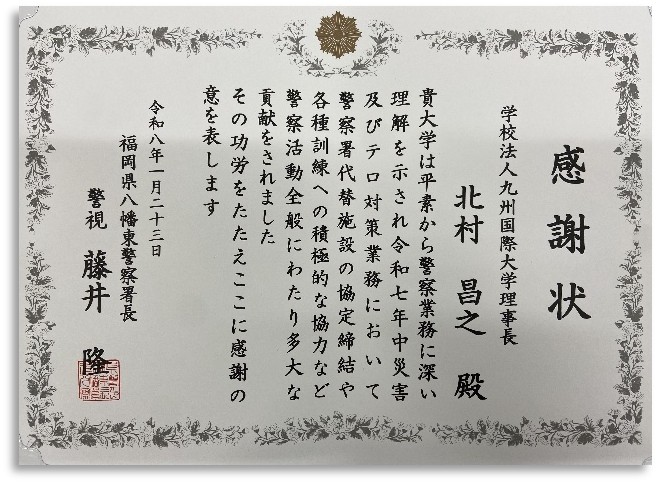 感謝状
学校法人九州国際大学理事長
北村 昌之 殿
貴大学は平素から警察業務に深い
理解を示され令和七年中災害
及びテロ対策業務において
警察署代替施設の協定締結や
各種訓練への積極的な協力など
警察活動全般にわたり多大な
貢献をされました
その功労をたたえここに感謝の
意を表します
令和八年一月二十三日
福岡県八幡東警察署長
警視 藤井 隆